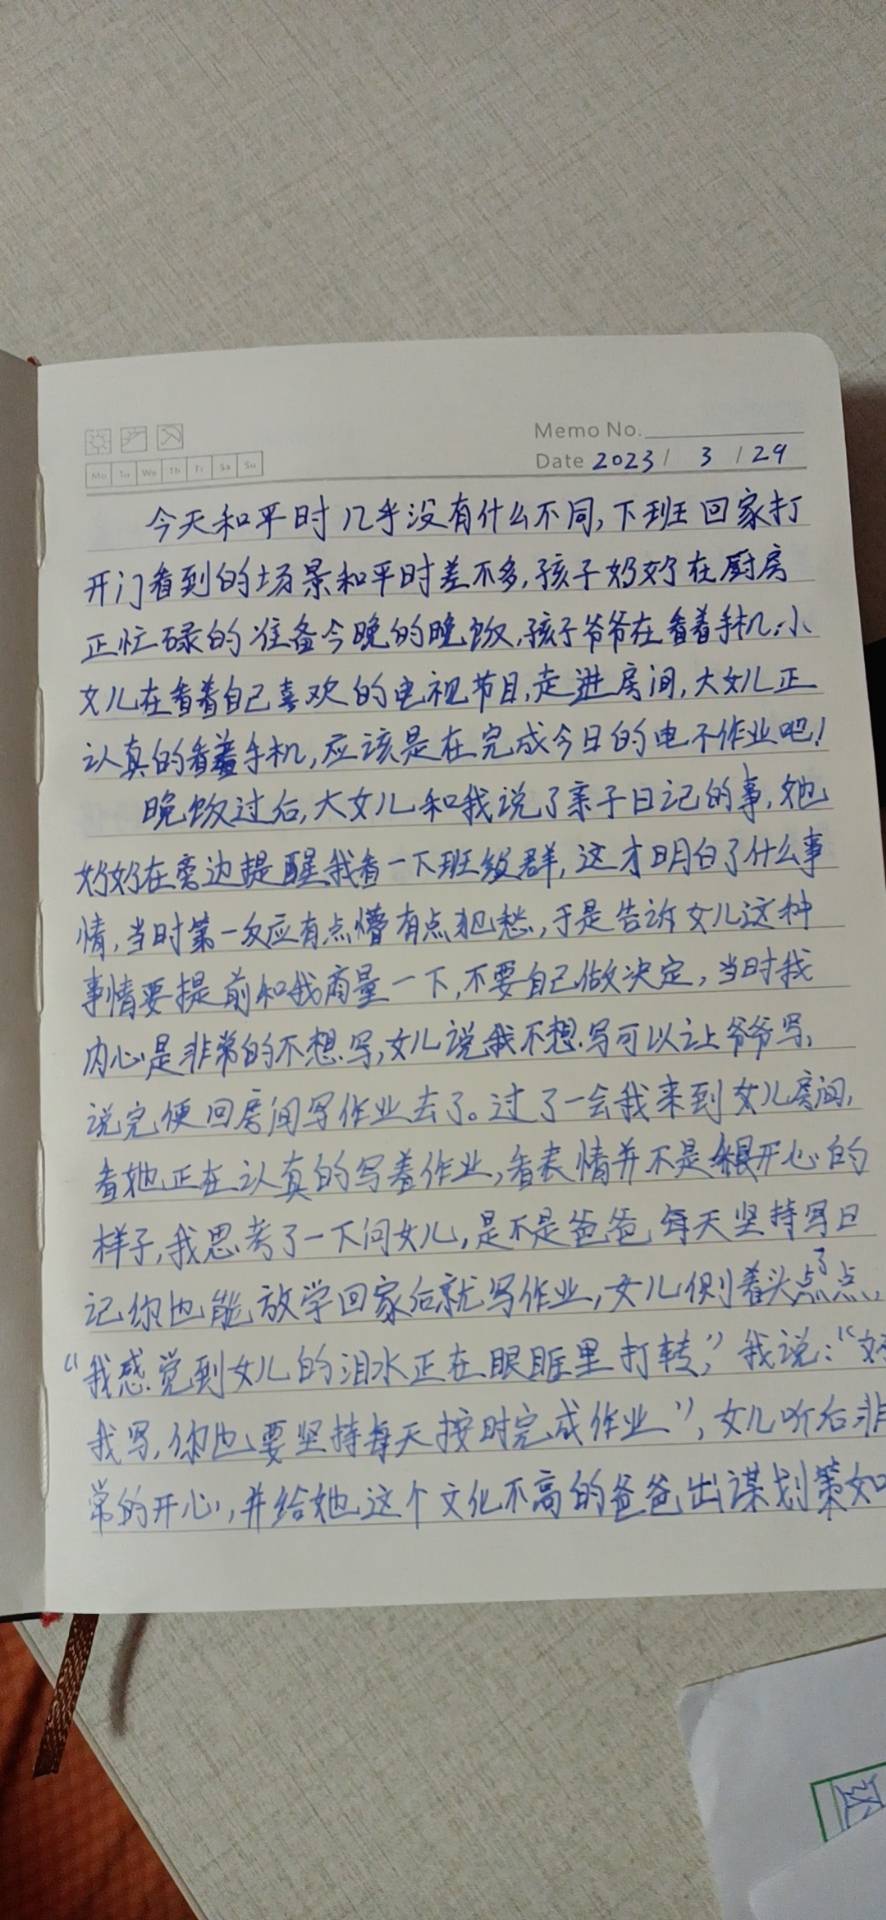 Memo No.
Mo Tu We Th Fr Sa Su
Date 2023 / 3 / 29
今天和平时几乎没有什么不同,下班回家打
开门看到的场景和平时差不多,孩子奶奶在厨房
正忙碌的准备今晚的晚饭,孩子爷爷在看着手机,小
女儿在看着自己喜欢的电视节目,走进房间,大女儿正
认真的看着手机,应该是在完成今日的电子作业吧!
晚饭过后,大女儿和我说了亲子日记的事,她
奶奶在旁边提醒我看一下班级群,这才明白了什么事
情,当时第一反应有点懵有点犯愁,于是告诉女儿这种
事情要提前和我商量一下,不要自己做决定,当时我
内心是非常的不想写,女儿说我不想写可以让爷爷写,
说完便回房间写作业去了。过了一会我来到女儿房间,
看她正在认真的写着作业,看表情并不是很开心的
样子,我思考了一下问女儿,是不是爸爸每天坚持写日
记你也能放学回家后就写作业,女儿侧着头点了点,
“我感觉到女儿的泪水正在眼眶里打转,”我说:“好
我写,你也要坚持每天按时完成作业”,女儿听后非
常的开心,并给她这个文化不高的爸爸出谋划策如